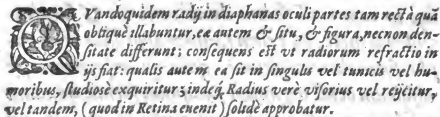 QVandoquidem radij in diaphanas oculi partes tam rectà quã
obliquè illabuntur, eæ autem & situ, & figura, necnon den-
sitate differunt; consequens est vt radiorum refractio in
ijs fiat: qualis autem ea sit in singulis vel tunicis vel hu-
moribus, studiosè exquiritur; indeq́. Radius verè visorius vel reijcitur,
vel tandem, (quod in Retina euenit) solidè approbatur.